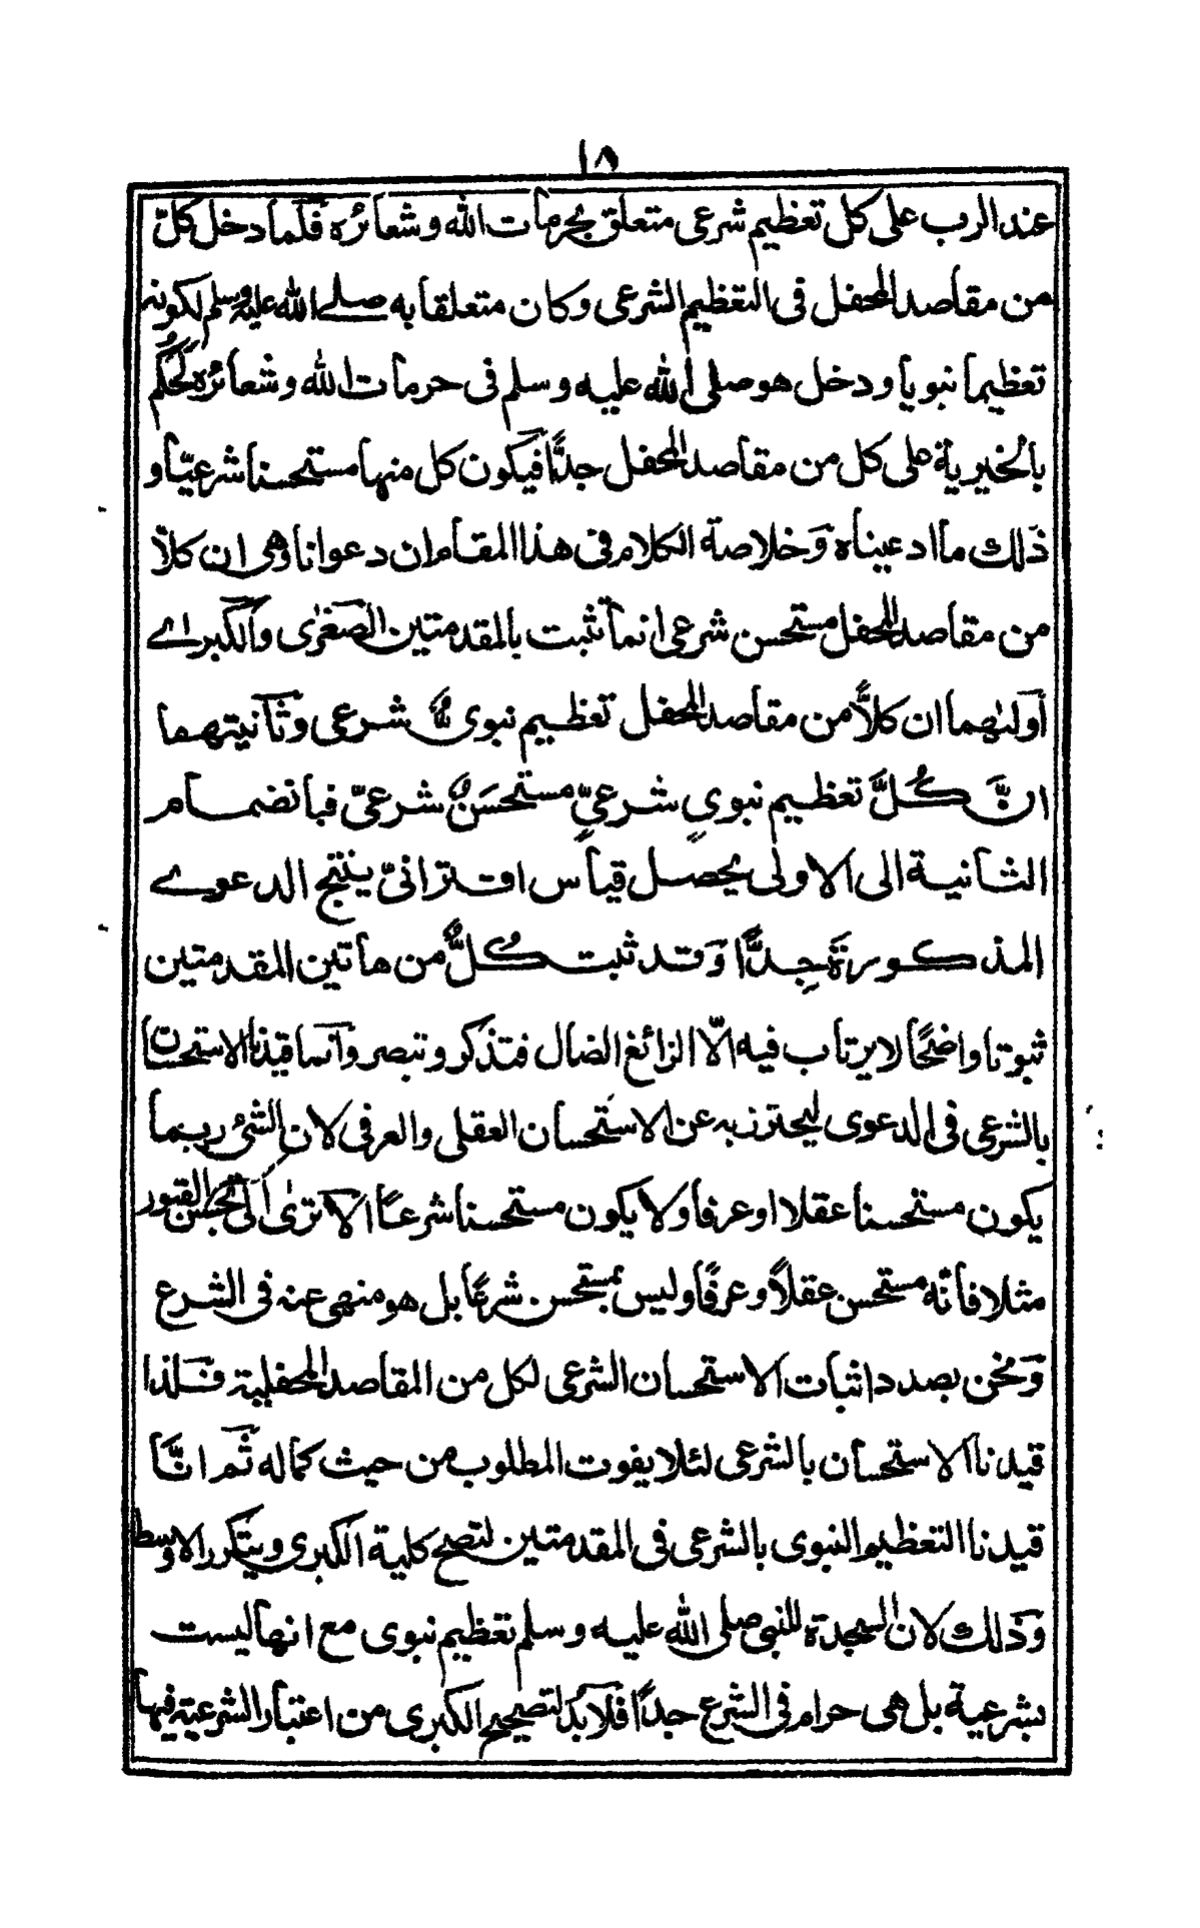 ١٨
عند الرب على كل تعظيم شرعى متعلق بحرمات الله وشعائره فلما دخل كلّ
من مقاصد المحفل فى التعظيم الشرعى وكان متعلقا به صلے الله عليه وسلم لكونه
تعظيما نبويا ودخل هو صلى الله عليه وسلم فى حرمات الله وشعائره لحُكم
بالخيرية على كل من مقاصد المحفل جدًّا فيكون كل منها مستحسنا شرعيّا و
ذلك ما ادعيناه وخلاصة الكلام فى هذا المقام ان دعوانا وهى ان كلاّ
من مقاصد المحفل مستحسن شرعى انما تثبت بالمقدمتين الصغرٰى والكبراے
اولٰهما ان كلاًّ من مقاصد المحفل تعظيم نبوى شرعى وثانيتهما
انّ كُلَّ تعظيم نبوي شرعيّ مستحسَنٌ شرعيّ فبانضمام
الثانية الى الاولى يحصل قياس اقترانىّ ينتج الدعوے
المذكورة جِدًّا وقد ثبت كُلٌّ من هاتين المقدمتين
ثبوتا واضحًا لا يرتاب فيه الّا الزائغ الضال فتذكر وتبصر وانما قيدنا الاستحسان
بالشرعى فى الدعوى ليحترز به عن الاستحسان العقلى والعرفى لان الشئ ربما
يكون مستحسنا عقلا او عرفا ولا يكون مستحسنا شرعًا الا ترٰى الى تجصيص القبور
مثلا فانّه مستحسن عقلاً وعرفًا وليس بمستحسن شرعًا بل هو منهى عنه فى الشرع
ونحن بصدد اثبات الاستحسان الشرعى لكل من المقاصد المحفلية فلذا
قيدنا الاستحسان بالشرعى لئلا يفوت المطلوب من حيث كماله ثم انّا
قيدنا التعظيم النبوى بالشرعى فى المقدمتين لتصح كلية الكبرى ويتكرر الاوسط
وذلك لان السجدة للنبى صلى الله عليه وسلم تعظيم نبوى مع انها ليست
بشرعية بل هى حرام فى الشرع جدًّا فلا بد لتصحيح الكبرى من اعتبار الشرعية فيها